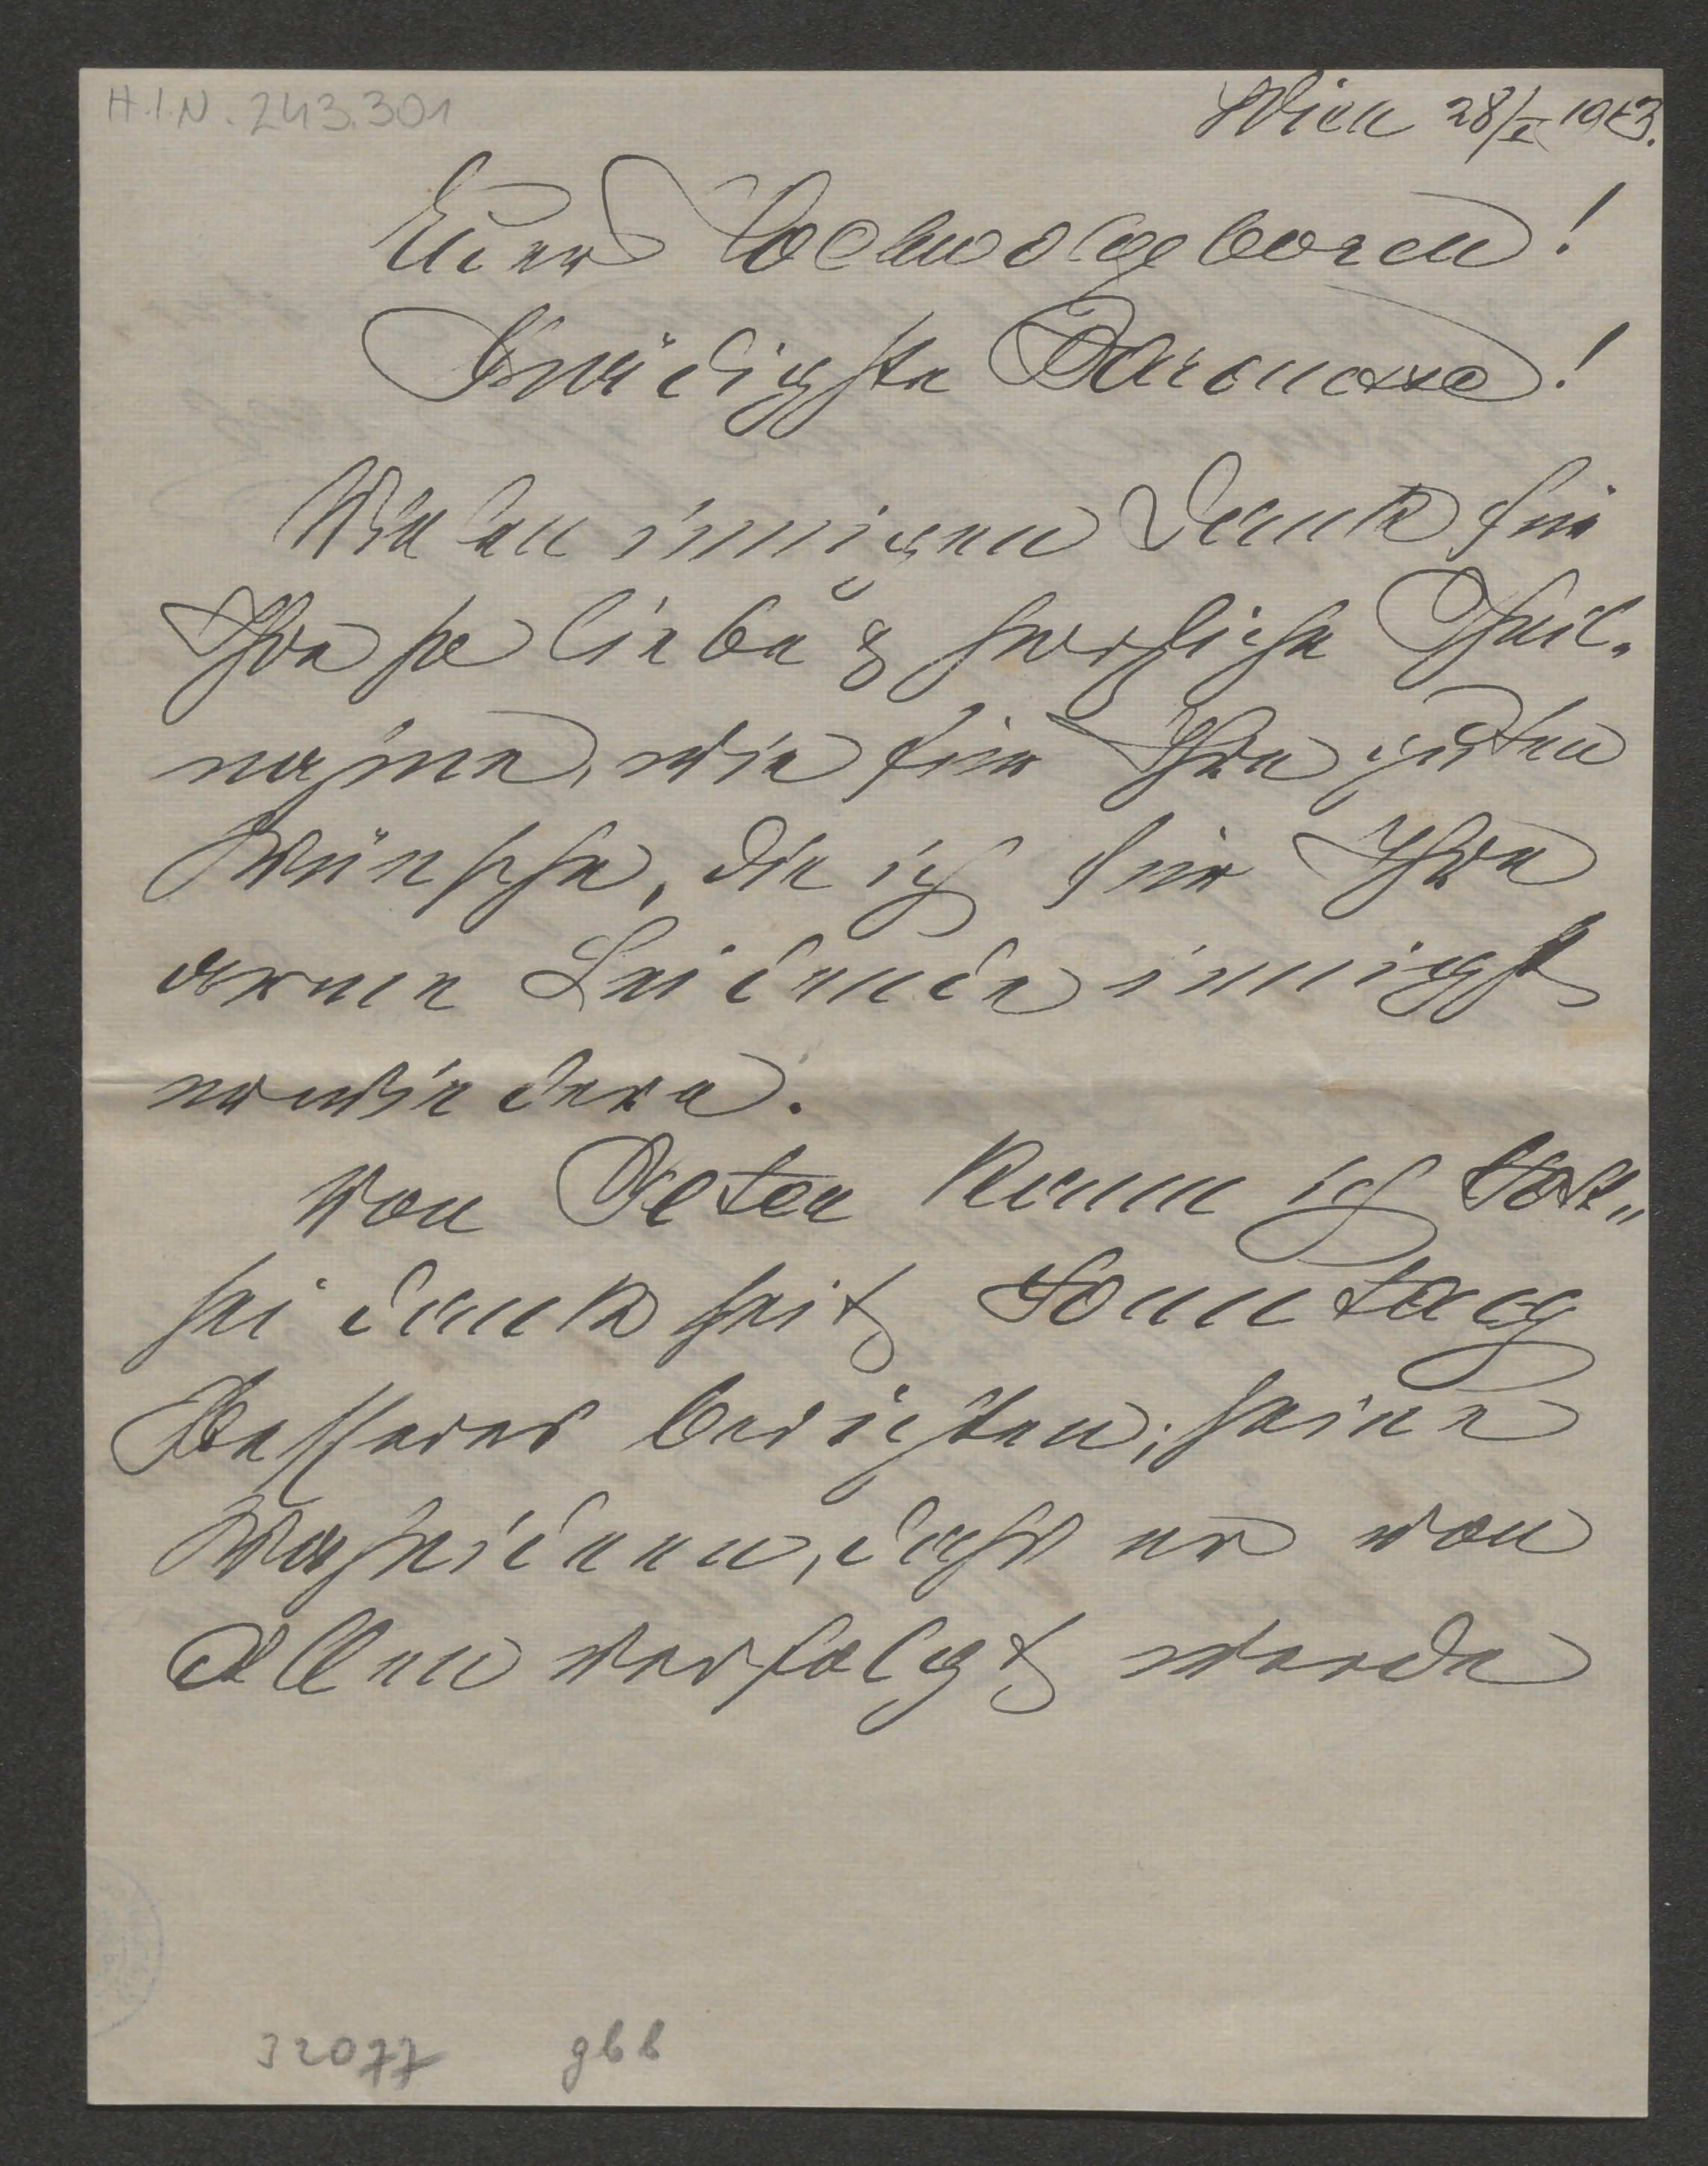 H.I.N. 243.301
Wien 28/I 1913.
Euer Hochwolgeboren!
Gnädigste Baronesse!
Vielen innigen Dank für
Ihre so liebe & herzliche Theil-
nahme, wie für Ihre guten
Wünsche, die ich für Ihre
arme Leidende innigst
erwiedere.
Von Peter kann ich Gott„
sei dank seit Sonntag
Besseres berichten; seine
Wahnideen, dass er von
Allen verfolgt werde
32077 gbb